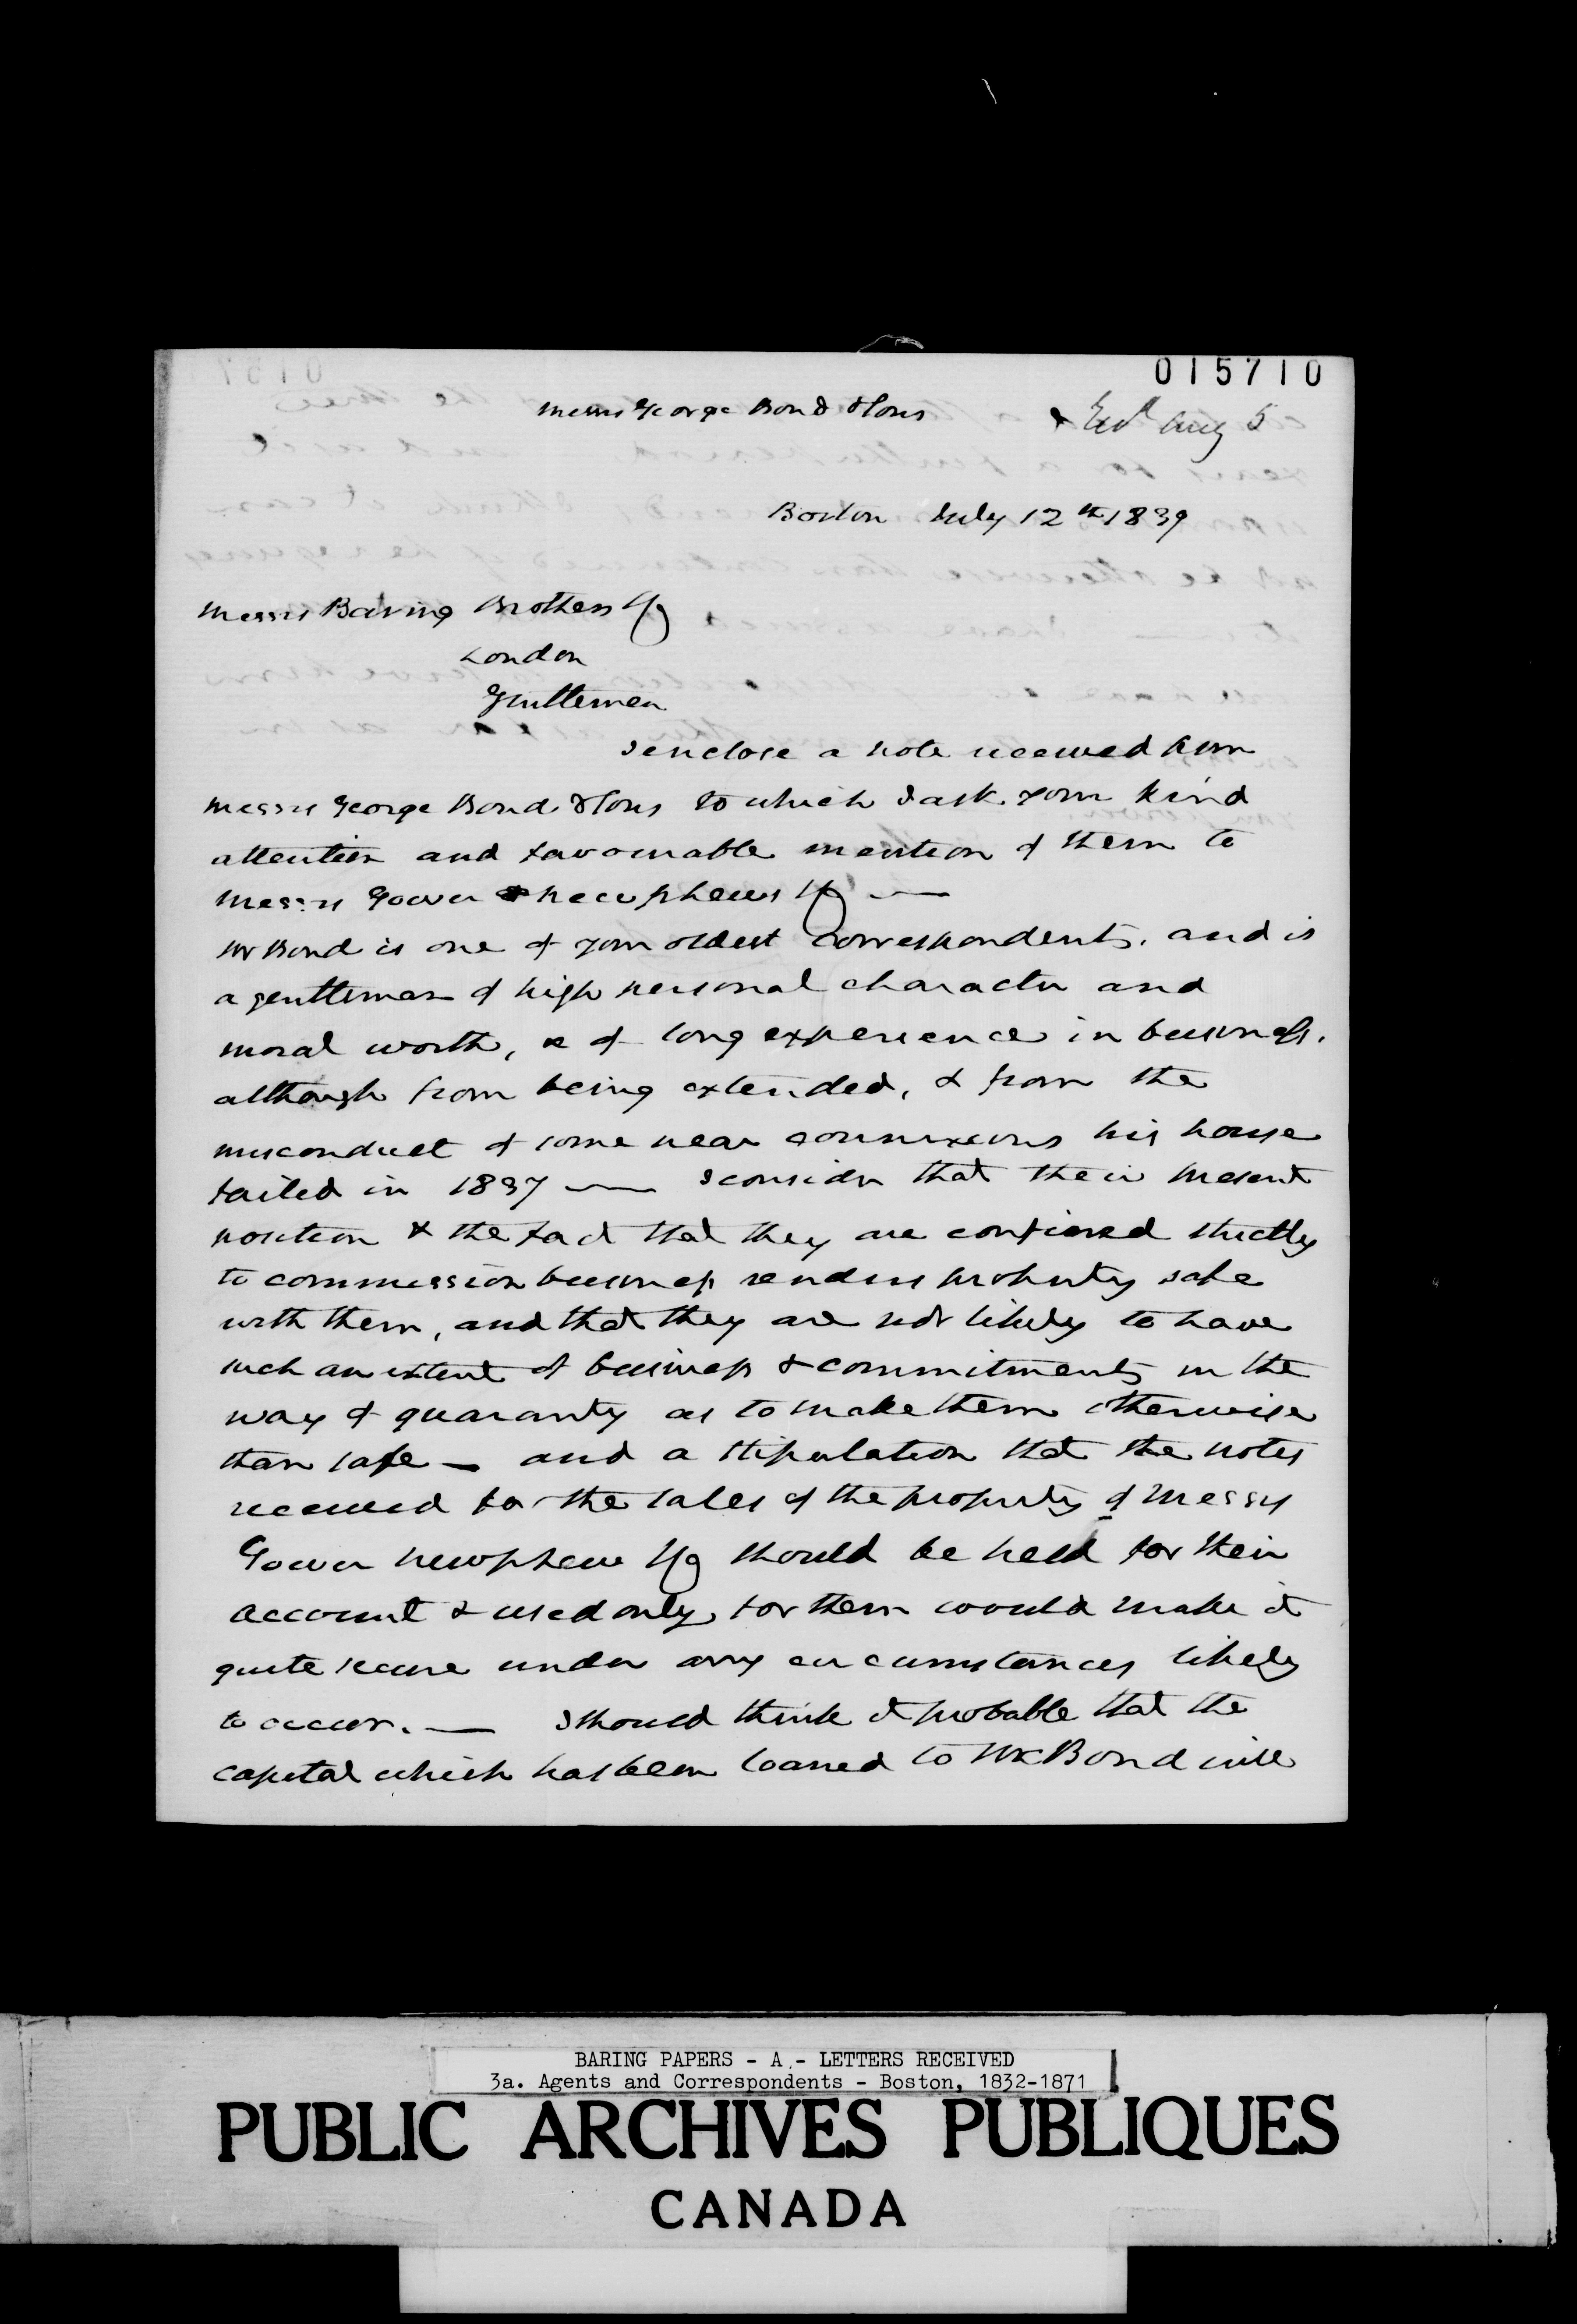 015710
Messrs George Bond & Sons
Recd Aug 5
Boston July 12th 1839
Messrs Baring Brothers & Co
London
Gentlemen
I enclose a note received from
Messrs George Bond & Sons to which I ask your kind
attention and favourable mention of them to
Messrs Gower Nephews & Co —
Mr Bond is one of your oldest correspondents, and is
a gentleman of high personal character and
moral worth, & of long experience in business,
although from being extended, & from the
misconduct of some near connexions his house
failed in 1837 — I consider that their present
position & the fact that they are confined strictly
to commission business renders property safe
with them, and that they are not likely to have
such an extent of business & commitments in the
way of guaranty as to make them otherwise
than safe — and a stipulation that the notes
received for the sales of the property of Messrs
Gower Newphew & Co should be held for their
account & used only for them would make it
quite secure under any circumstances likely
to occur. — I should think it probable that the
capital which has been loaned to Mr Bond will
BARING PAPERS - A - LETTERS RECEIVED
3a. Agents and Correspondents - Boston, 1832-1871
PUBLIC ARCHIVES PUBLIQUES
CANADA